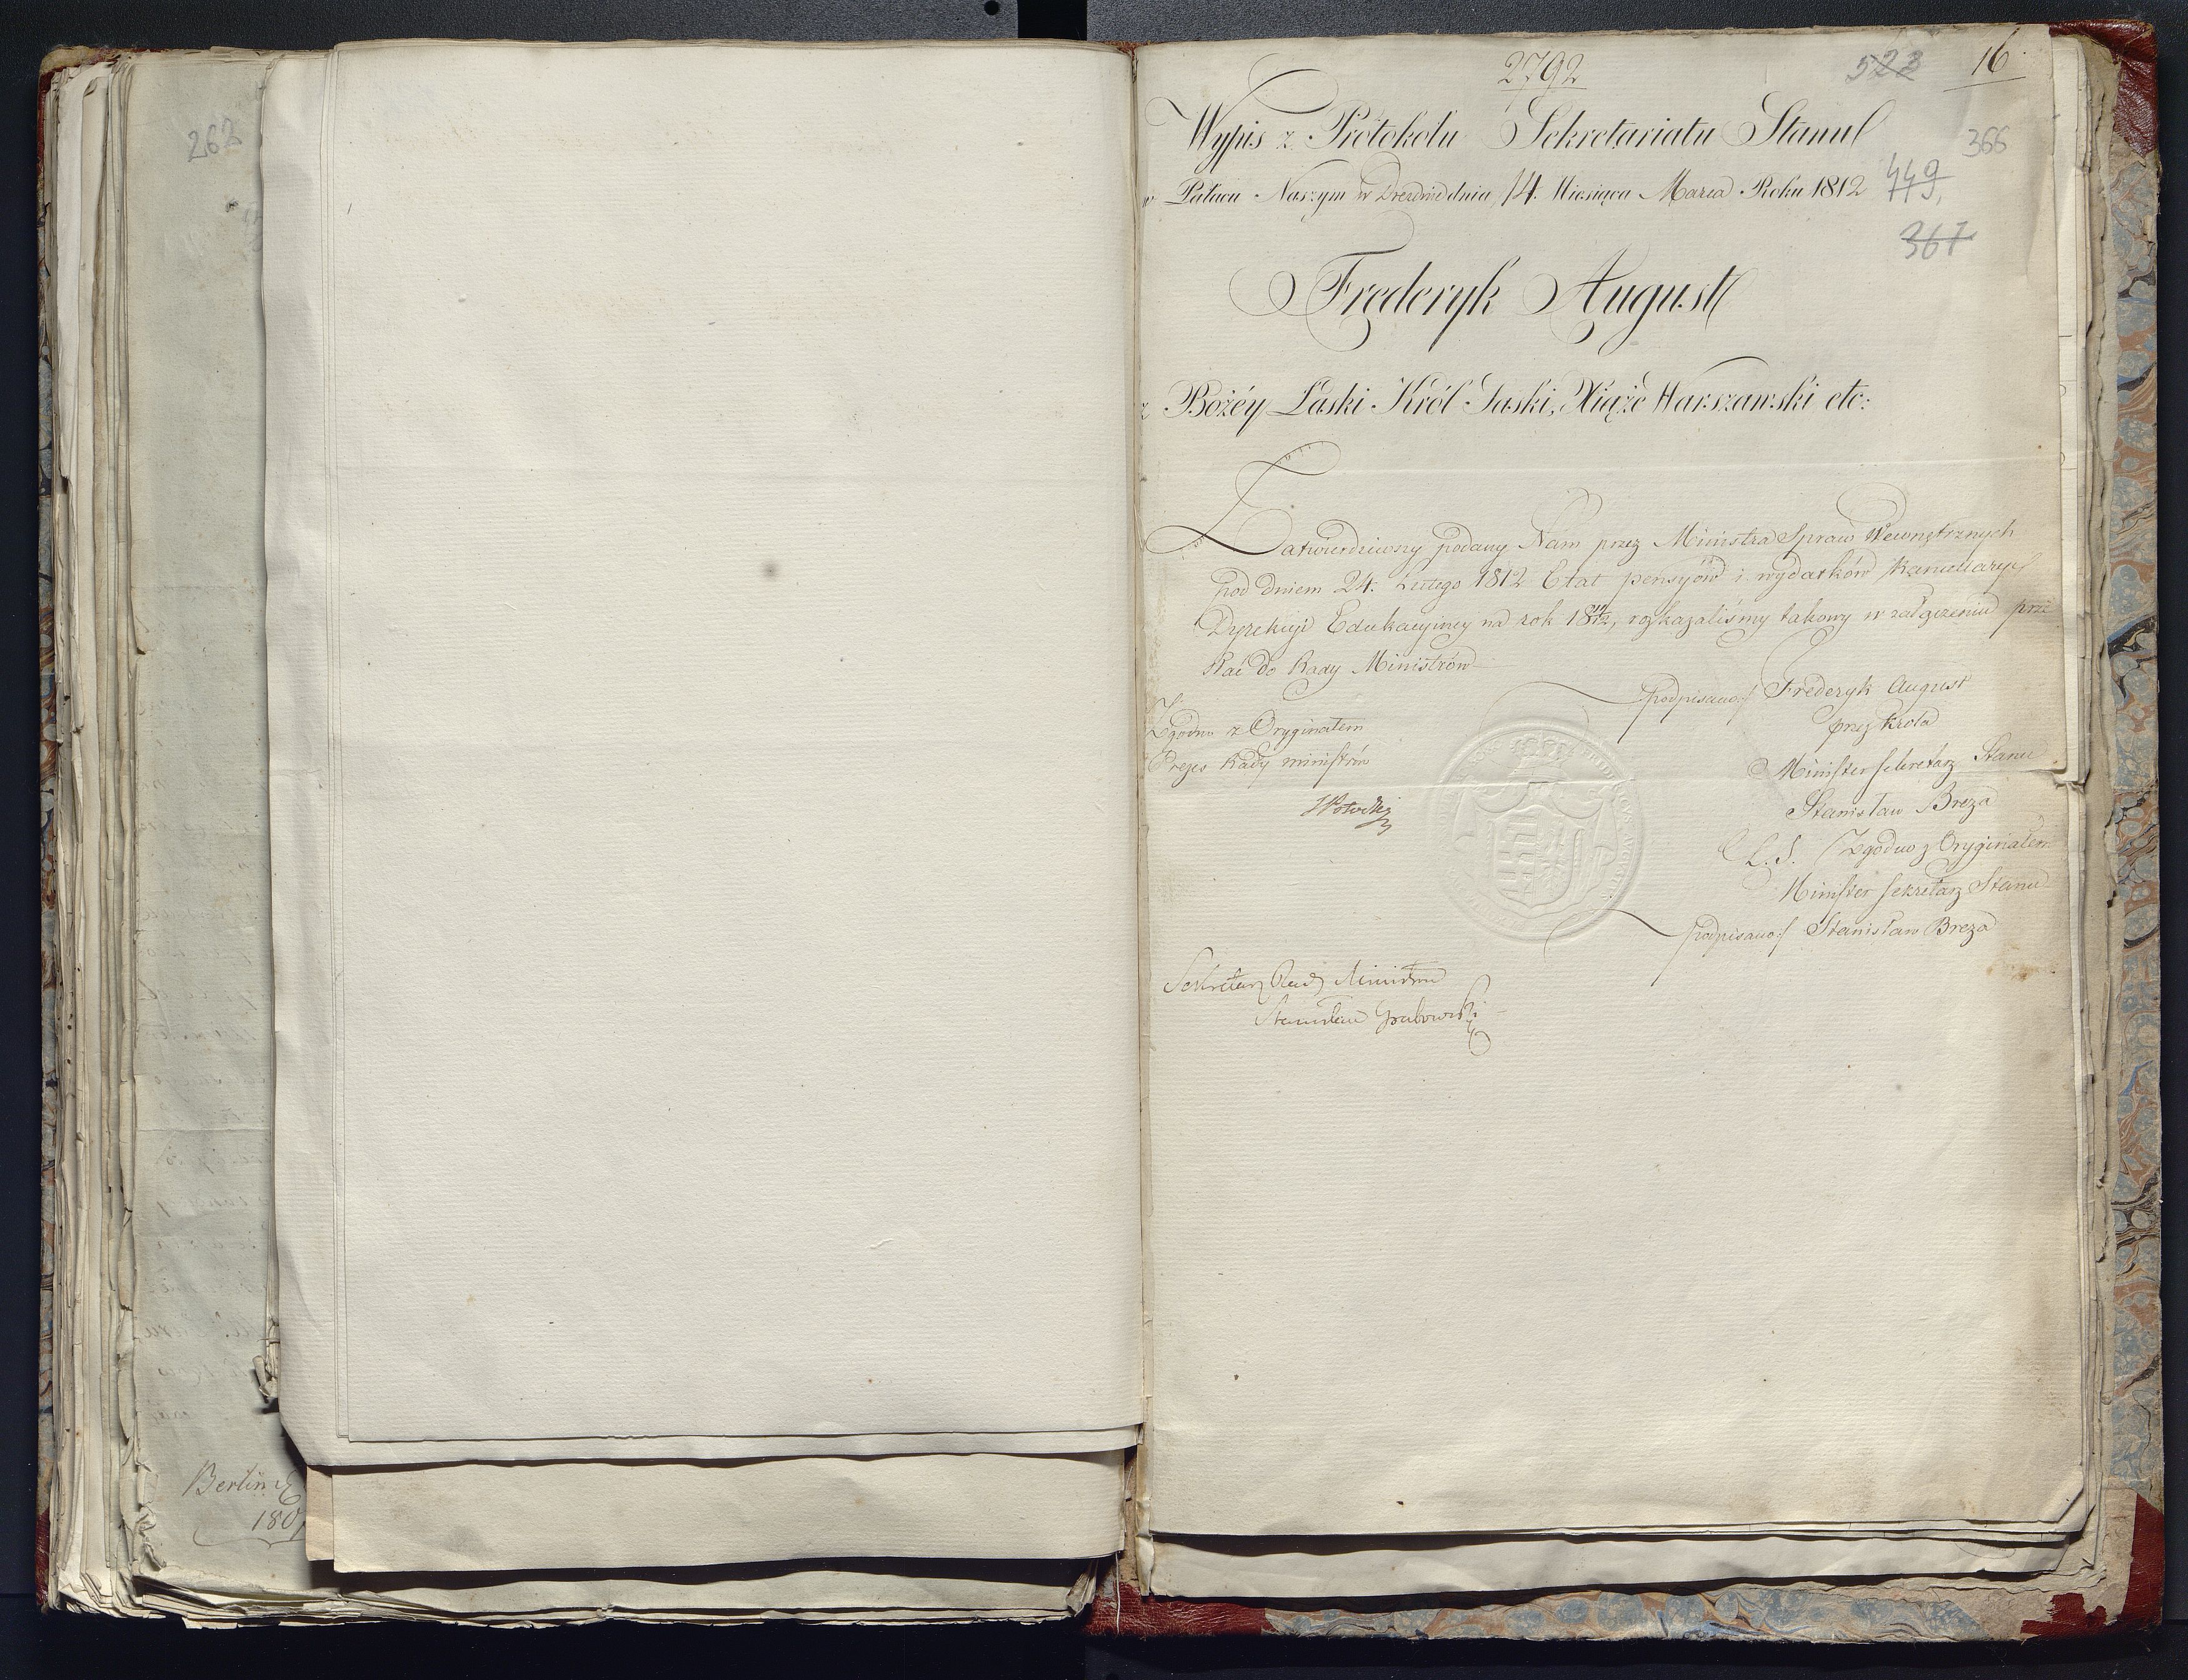 262
Berlin d
180
2792
523
16
366
Wypis z Protokołu Sekretariatu Stanu
w Pałacu Naszym w Dreznie dnia 14. Miesiąca Marca Roku 1812
449.
367
Frederyk August
z Bożéy Łaski Król Saski, Xiąże Warszawski etc:
Zatwierdziwszy podany Nam przez Ministra Spraw Wewnętrznych
pod dniem 24. Lutego 1812 Etat pensyów i wydatków Kancellaryi
Dyrekcyi Edukacyiney na rok 18 11/12, rozkazaliśmy takowy w załączeniu prze
słać do Rady Ministrów
podpisano:/ Frederyk August
przez Króla
Minister Sekretarz Stanu
Stanisław Breza
L. S. Zgodno z Oryginałem
Minister Sekretarz Stanu
podpisano:/ Stanisław Breza
Zgodno z Oryginałem
Prezes Rady Ministrów
Sekretarz Rady Ministrów
Stanisław Grabowski